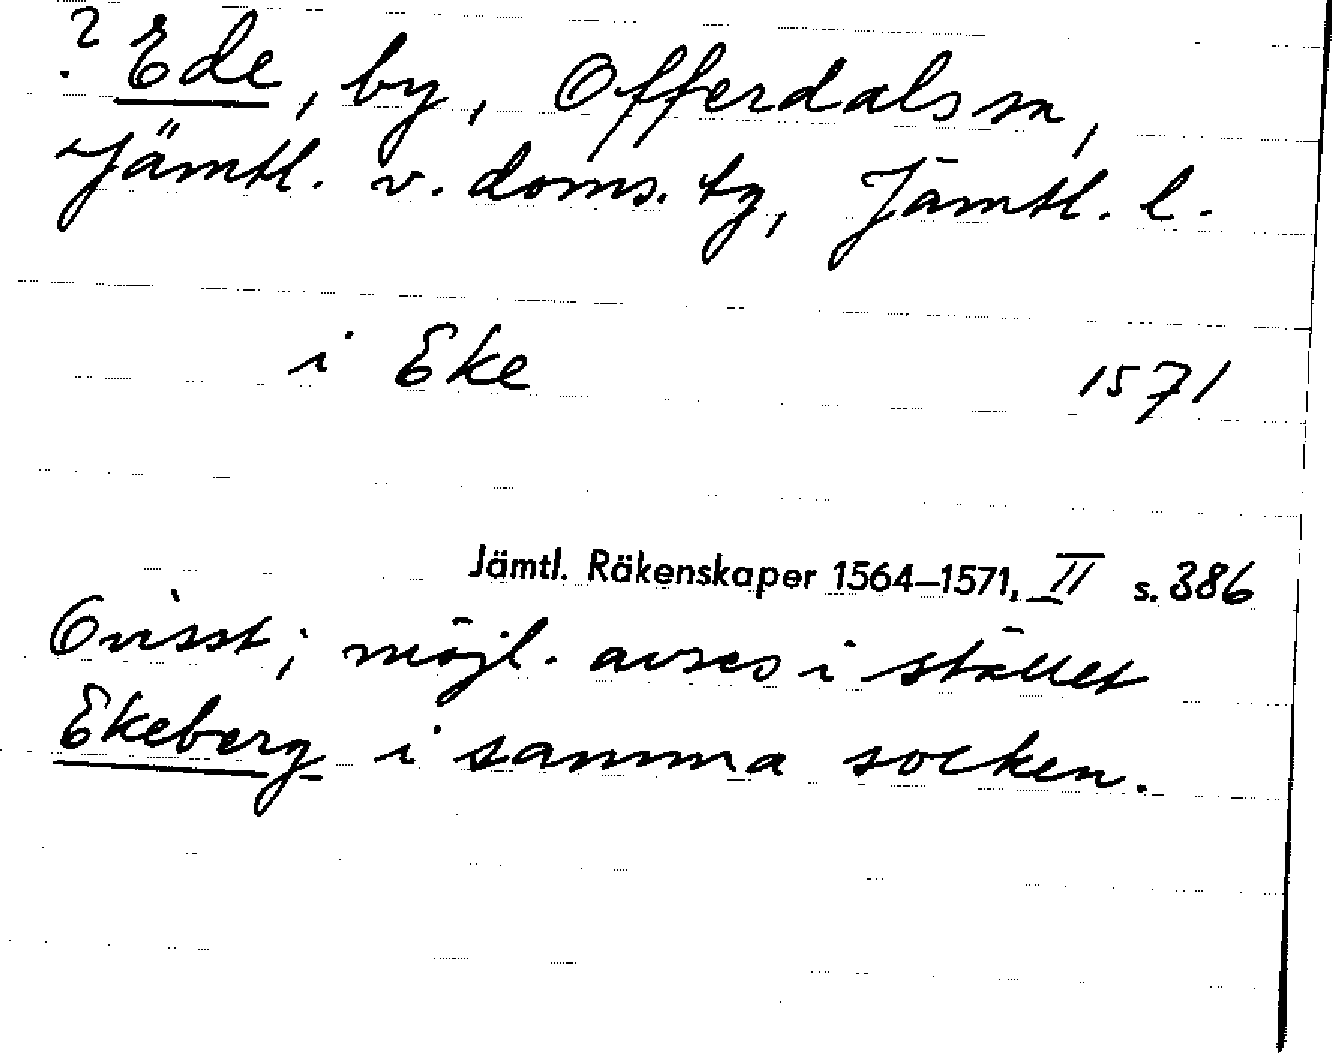 ? Ede, by, Offerdals sn,
Jämtl. v. doms. tg, Jämtl. l.
i Eke 1571
Jämtl. Räkenskaper 1564–1571, II s. 386
Ovisst; möjl. avses i stället
Ekeberg i samma socken.